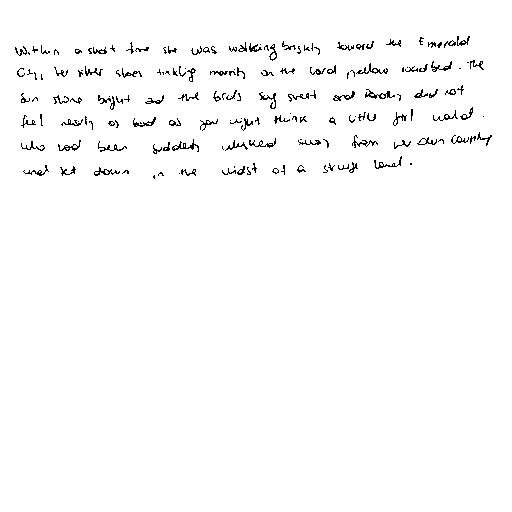 Within a short time she was walking briskly toward the Emerald
City, her silver shoes tinkling merrily on the hard, yellow roadbed. The
sun shone bright and the birds sang sweet and Dorothy did not
feel nearly as bad as you might think a little girl would.
who had been suddenly whisked away from her own country
and set down in the midst of a strange land.